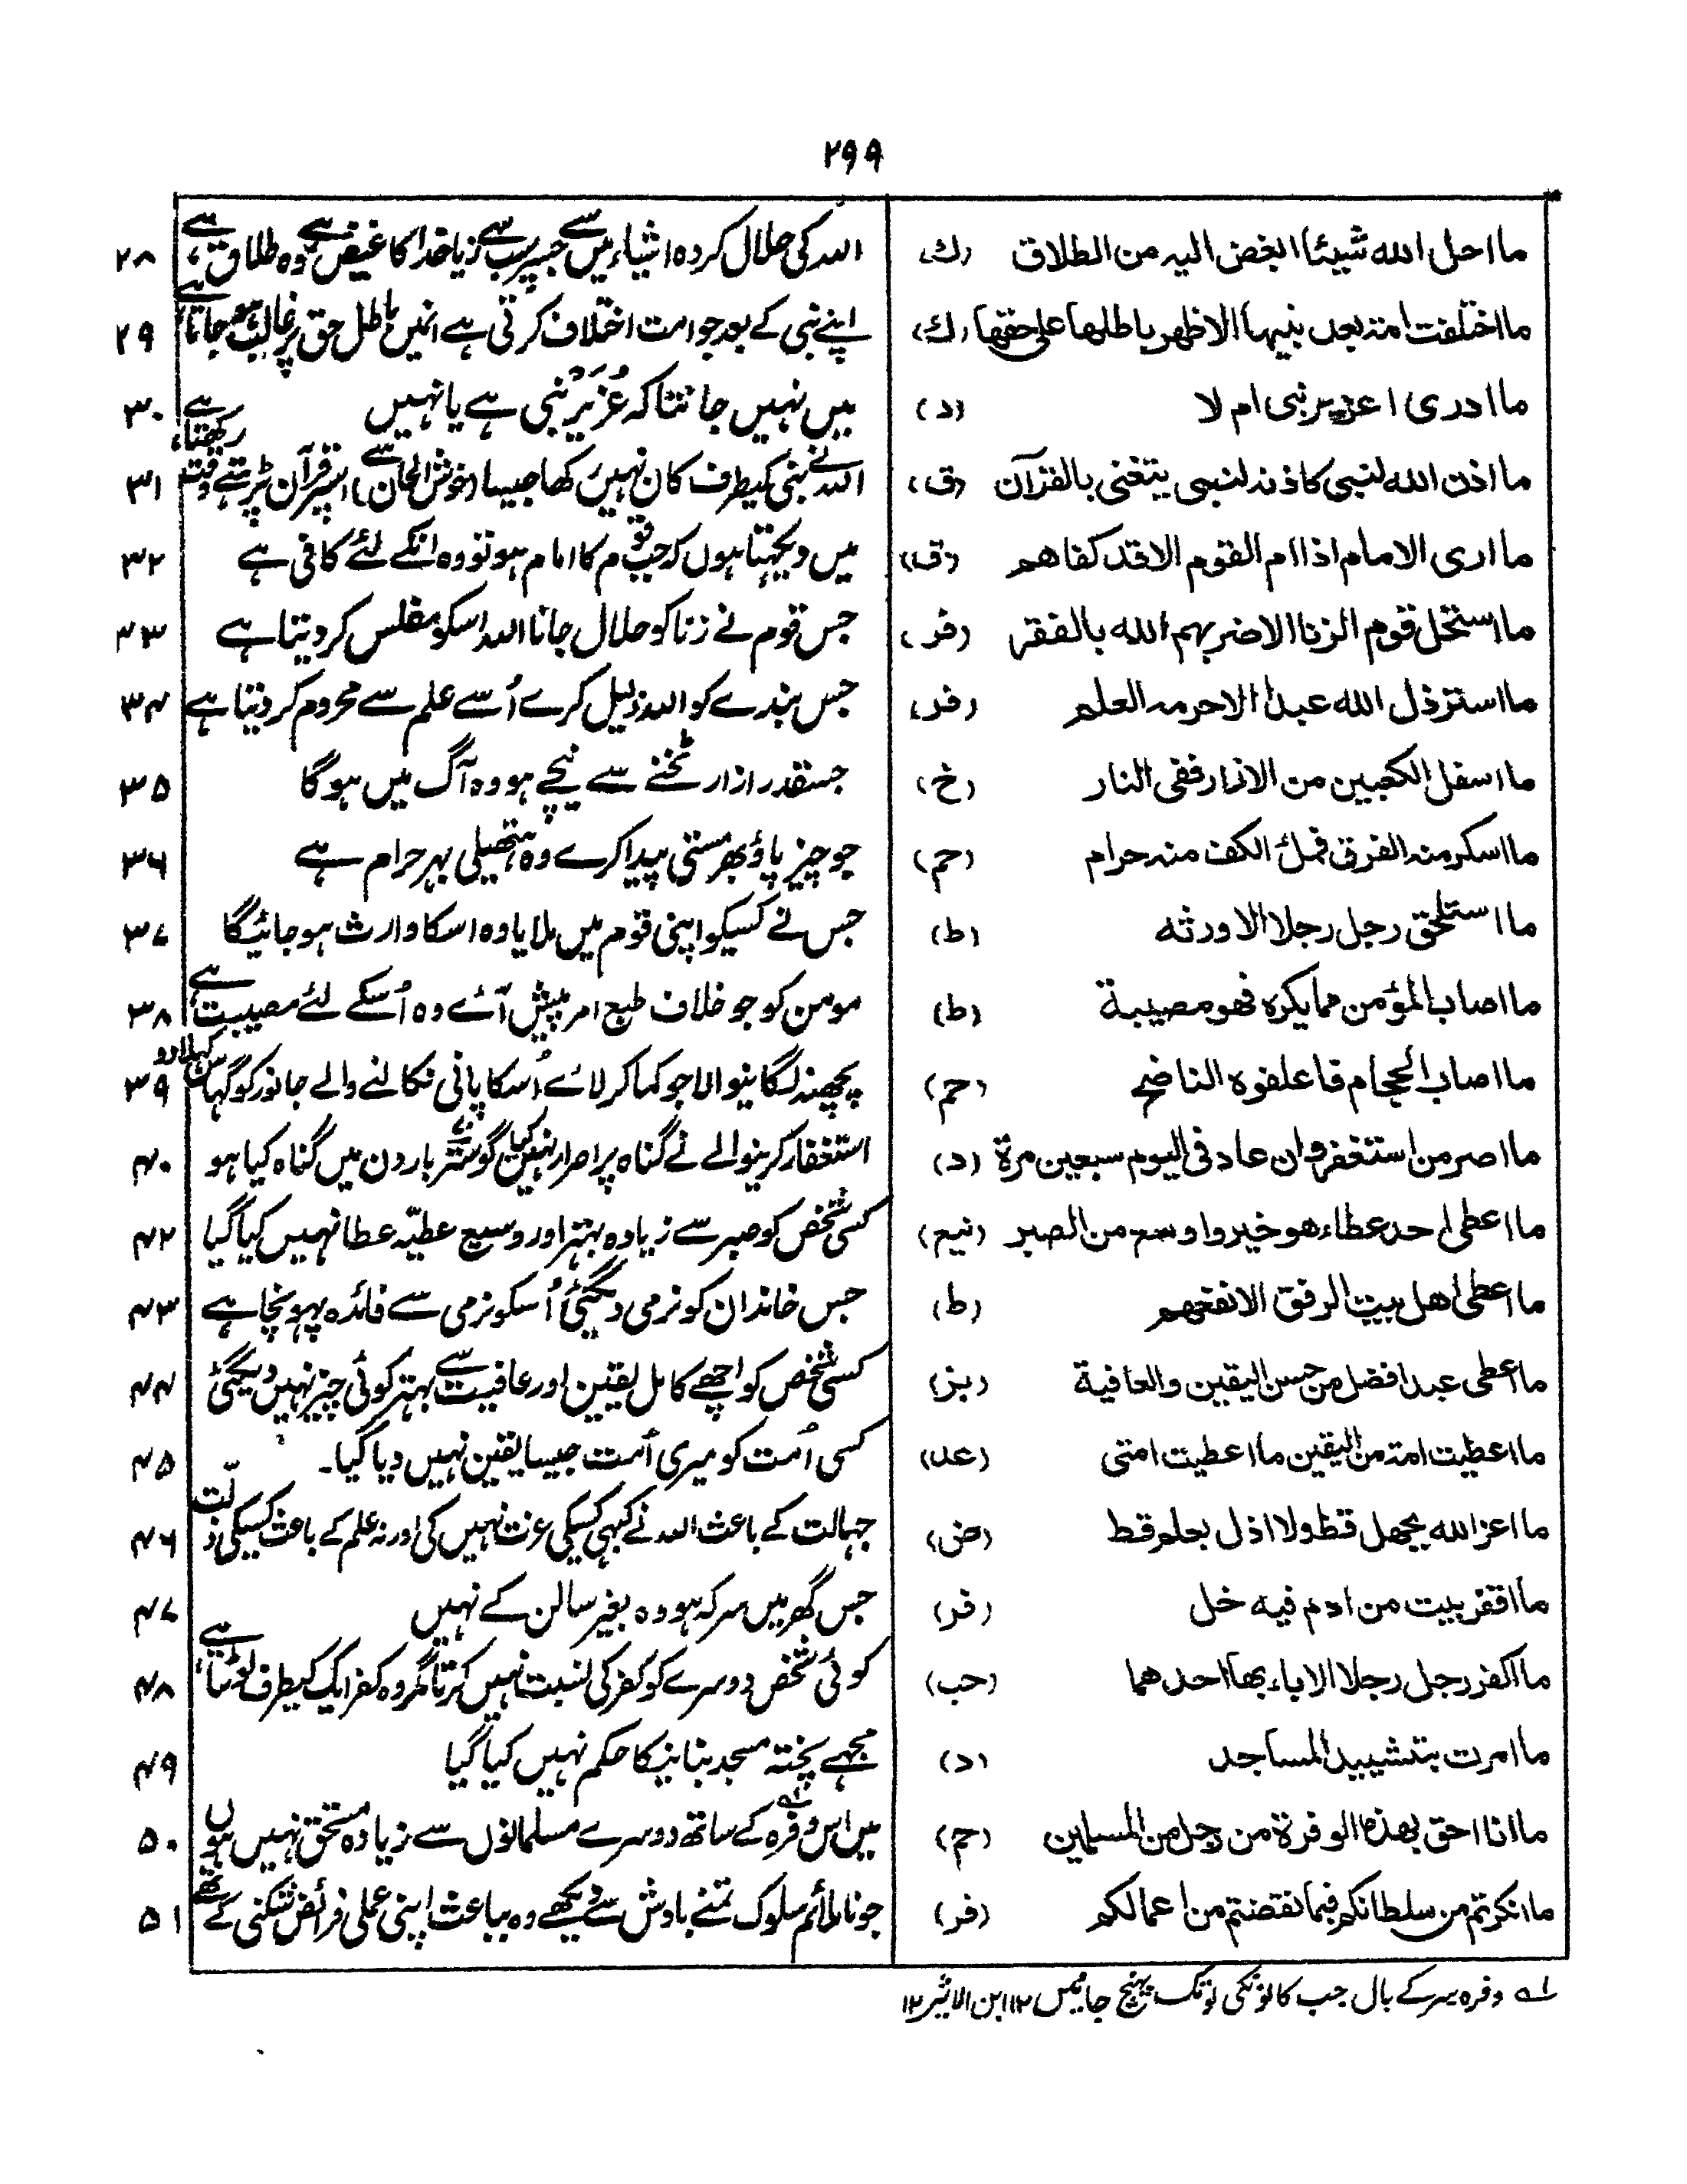 ۲۹۹
ما احل الله شیئا ابغض الیه من الطلاق (ك) الله کی حلال کردہ اشیاء میں سے جسپر سب سے زیا خدا کا غیض ہے وہ طلاق ہے ۲۸
ما اختلفت امة بعد نبیها الا ظهر باطلها علی حقها (ك) اپنے نبی کے بعد جو امت اختلاف کرتی ہے انمیں باطل حق پر غالب ہو جاتا ہے ۲۹
ما ادری اعزیر نبی ام لا (د) میں نہیں جانتا کہ عُزَیرؑ نبی ہے یا نہیں ۳۰
ما اذن الله لنبی کاذنه لنبی یتغنی بالقرآن (ق) اللہ نے نبی کیطرف کان نہیں رکھا جیسا (خوش الحان سے) اسپر قرآن پڑہتے وقت رکھتا ہے ۳۱
ما اری الامام اذا ام القوم الا قد کفاهم (ق) میں دیکہتا ہوں کہ جب قوم کا امام ہو تو وہ انکے لئے کافی ہے ۳۲
ما استحل قوم الزنا الا ضربهم الله بالفقر (فر) جس قوم نے زنا کو حلال جانا اللہ اسکو مفلس کر دیتا ہے ۳۳
ما استرذل الله عبدا الا حرمه العلم (فر) جس بندے کو اللہ ذلیل کرے اُسے علم سے محروم کر دیتا ہے ۳۴
ما اسفل الکعبین من الازار ففی النار (خ) جسقدر ازار ٹخنے سے نیچے ہو وہ آگ میں ہوگا ۳۵
ما اسکر منه الفرق فملأ الکف منه حرام (حم) جو چیز پاؤ بھر مستی پیدا کرے وہ ہتھیلی بہر حرام ہے ۳۶
ما استلحق رجل رجلا الا ورثه (ط) جس نے کسیکو اپنی قوم میں ملایا وہ اسکا وارث ہو جائیگا ۳۷
ما اصاب المؤمن مما یکره فهو مصیبة (ط) مومن کو جو خلاف طبع امر پیش آئے وہ اُسکے لئے مصیبت ہے ۳۸
ما اصاب الحجام فاعلفوه الناضح (حم) پچھنہ لگانیوالا جو کما کر لائے اُسکا پانی نکالنے والے جانور کو گہاس کہلا دو ۳۹
ما اصر من استغفر وان عاد فی الیوم سبعین مرة (د) استغفار کرنیوالے نے گناہ پر اصرار نہیں کیا گو ستر بار دن میں گناہ کیا ہو ۴۰
ما اعطی احد عطاء هو خیر واوسع من الصبر (نیع) کسی شخص کو صبر سے زیادہ بہتر اور وسیع عطیّہ عطا نہیں کیا گیا ۴۲
ما اعطی اهل بیت الرفق الا نفعهم (ط) جس خاندان کو نرمی دیگئی اُسکو نرمی سے فائدہ پہونچا ہے ۴۳
ما اعطی عبد افضل من حسن الیقین والعافیة (بز) کسی شخص کو اچھے کامل یقین اور عافیت سے بہتر کوئی چیز نہیں دیگئی ۴۴
ما اعطیت امة من الیقین ما اعطیت امتی (عد) کسی اُمت کو میری اُمت جیسا یقین نہیں دیا گیا۔ ۴۵
ما اعز الله بجهل قط ولا اذل بعلم قط (ض) جہالت کے باعث اللہ نے کبہی کسیکی عزت نہیں کی اور نہ علم کے باعث کسیکی ذلّت ۴۶
ما اقفر بیت من ادم فیه خل (فر) جس گھر میں سرکہ ہو وہ بغیر سالن کے نہیں ۴۷
ما اکفر رجل رجلا الا باء بها احدهما (حب) کوئی شخص دوسرے کو کفر کی نسبت نہیں کرتا مگر وہ کفر ایک کیطرف لوٹتا ہے ۴۸
ما امرت بتشیید المساجد (د) مجہے پختہ مسجد بنانیکا حکم نہیں کیا گیا ۴۹
ما انا احق بهذه الوفرة من رجل من المسلمین (حم) میں اس وفرہ کے ساتھ دوسرے مسلمانوں سے زیادہ مستحق نہیں ہوں ۵۰
ما انکرتم من سلطانکم فبما نقضتم من اعمالکم (فر) جو ناملائم سلوک تمنے بادش سے دیکھے وہ بباعث اپنی عملی فرائض شکنی کے تھے ۵۱
لہ وفرہ سر کے بال جب کانونکی لو تک پہنچ جائیں ۱۲ ابن الاثیر ۱۲